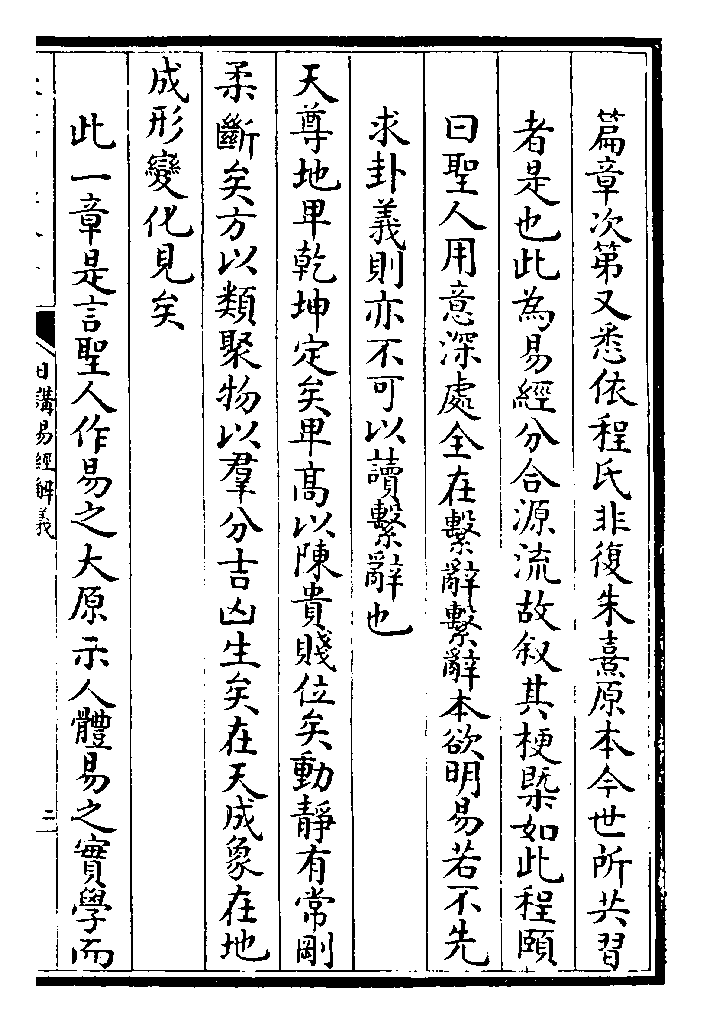 篇章次第又悉依程氏非復朱熹原本今世所共習
者是也此為易經分合源流故叙其梗槩如此程頤
曰聖人用意深處全在繫辭繫辭本欲明易若不先
求卦義則亦不可以讀繫辭也
天尊地卑乾坤定矣卑高以陳貴賤位矣動靜有常剛
柔斷矣方以類聚物以羣分吉凶生矣在天成象在地
成形變化見矣
此一章是言聖人作易之大原示人體易之實學而
日講易經解義
二